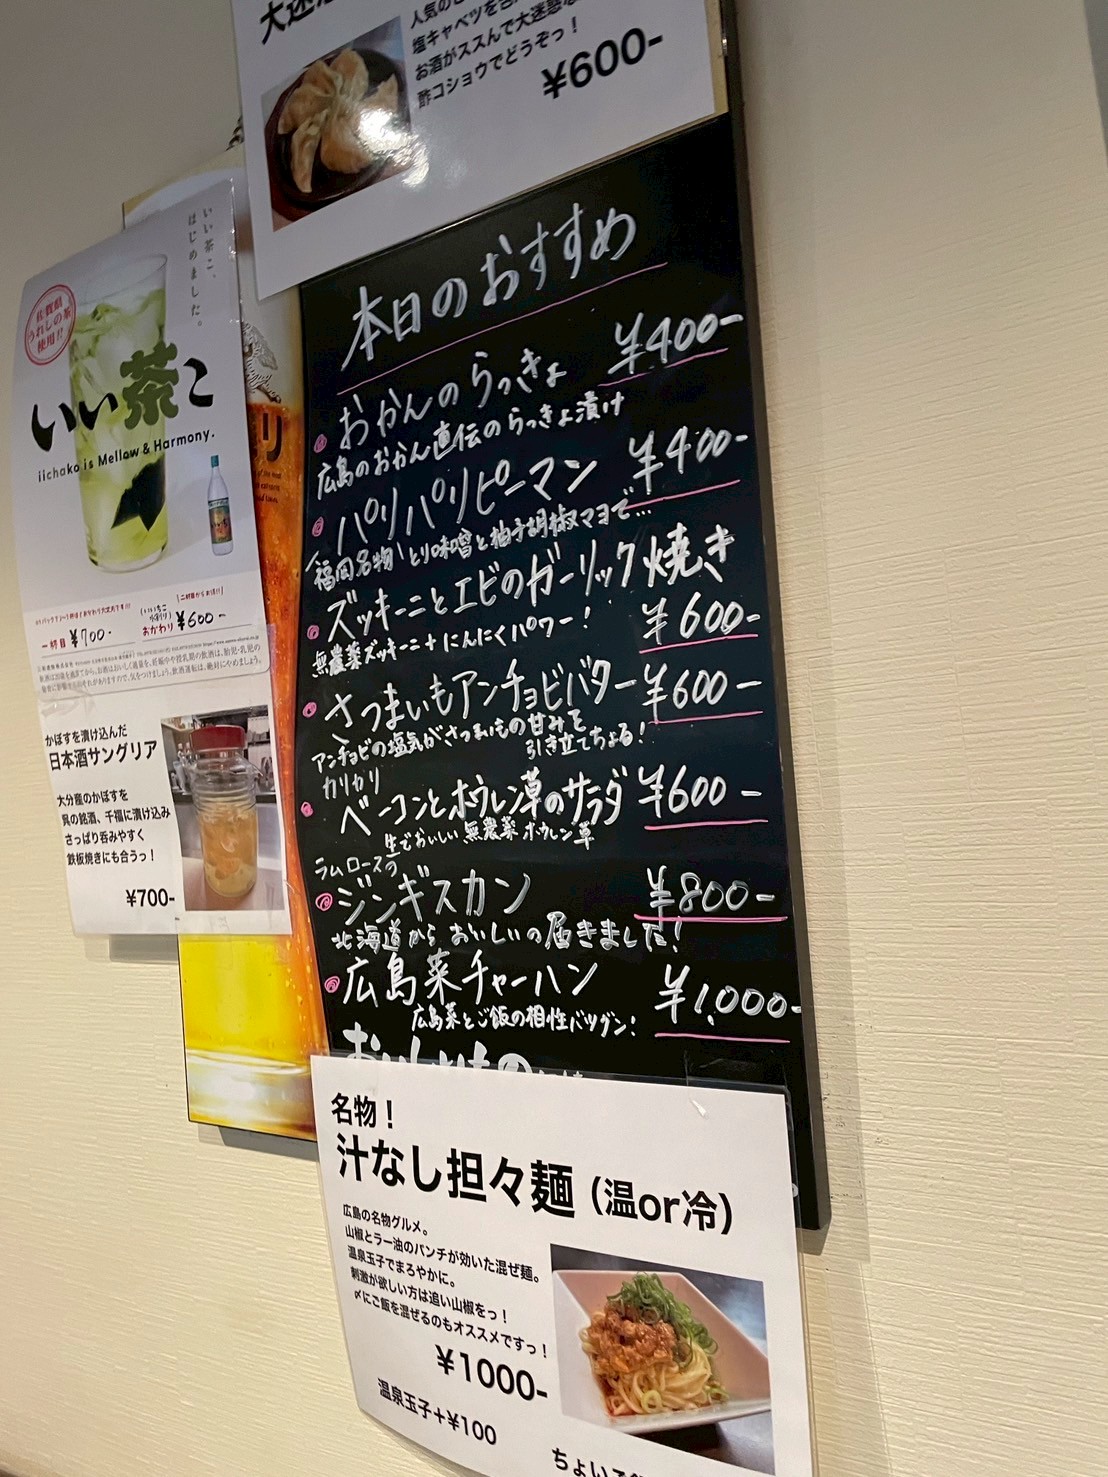 人気の
塩キャベツを
お酒がススんで大迷惑
酢コショウでどうぞっ！
¥600-
いい茶こ、
はじめました。
佐賀県
うれしの茶
使用!!
いい茶こ
iichako is Mellow & Harmony.
一杯目 ¥700-
おかわり ¥600-
かぼすを漬け込んだ
日本酒サングリア
大分産のかぼすを
呉の銘酒、千福に漬け込み
さっぱり呑みやすく
鉄板焼きにも合うっ！
¥700-
本日のおすすめ
おかんのらっきょ ¥400-
広島のおかん直伝のらっきょ漬け
パリパリピーマン ¥400-
福岡名物とり味噌と柚子胡椒マヨで…
ズッキーニとエビのガーリック焼き
無農薬ズッキーニ+にんにくパワー！ ¥600-
さつまいもアンチョビバター ¥600-
アンチョビの塩気がさつまいもの甘みを
引き立てちょる！
カリカリ
ベーコンとホウレン草のサラダ ¥600-
生でおいしい無農薬ホウレン草
ラムロースの
ジンギスカン ¥800-
北海道からおいしいの届きました！
広島菜チャーハン ¥1,000-
広島菜とご飯の相性バツグン！
名物！
汁なし担々麺（温or冷）
広島の名物グルメ。
山椒とラー油のパンチが効いた混ぜ麺。
温泉玉子でまろやかに。
刺激が欲しい方は追い山椒をっ！
〆にご飯を混ぜるのもオススメですっ！
¥1000-
温泉玉子+¥100
ちょい